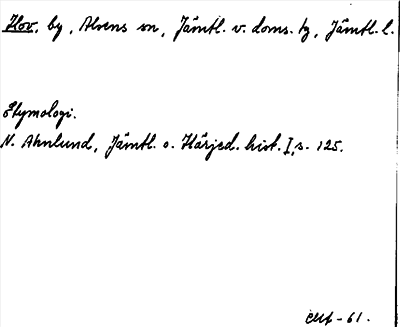 Hov, by, Alsens sn, Jämtl. v. doms. tg, Jämtl. l.
Etymologi.
N. Ahnlund, Jämtl. o. Härjed. hist. I, s. 125.
-61.